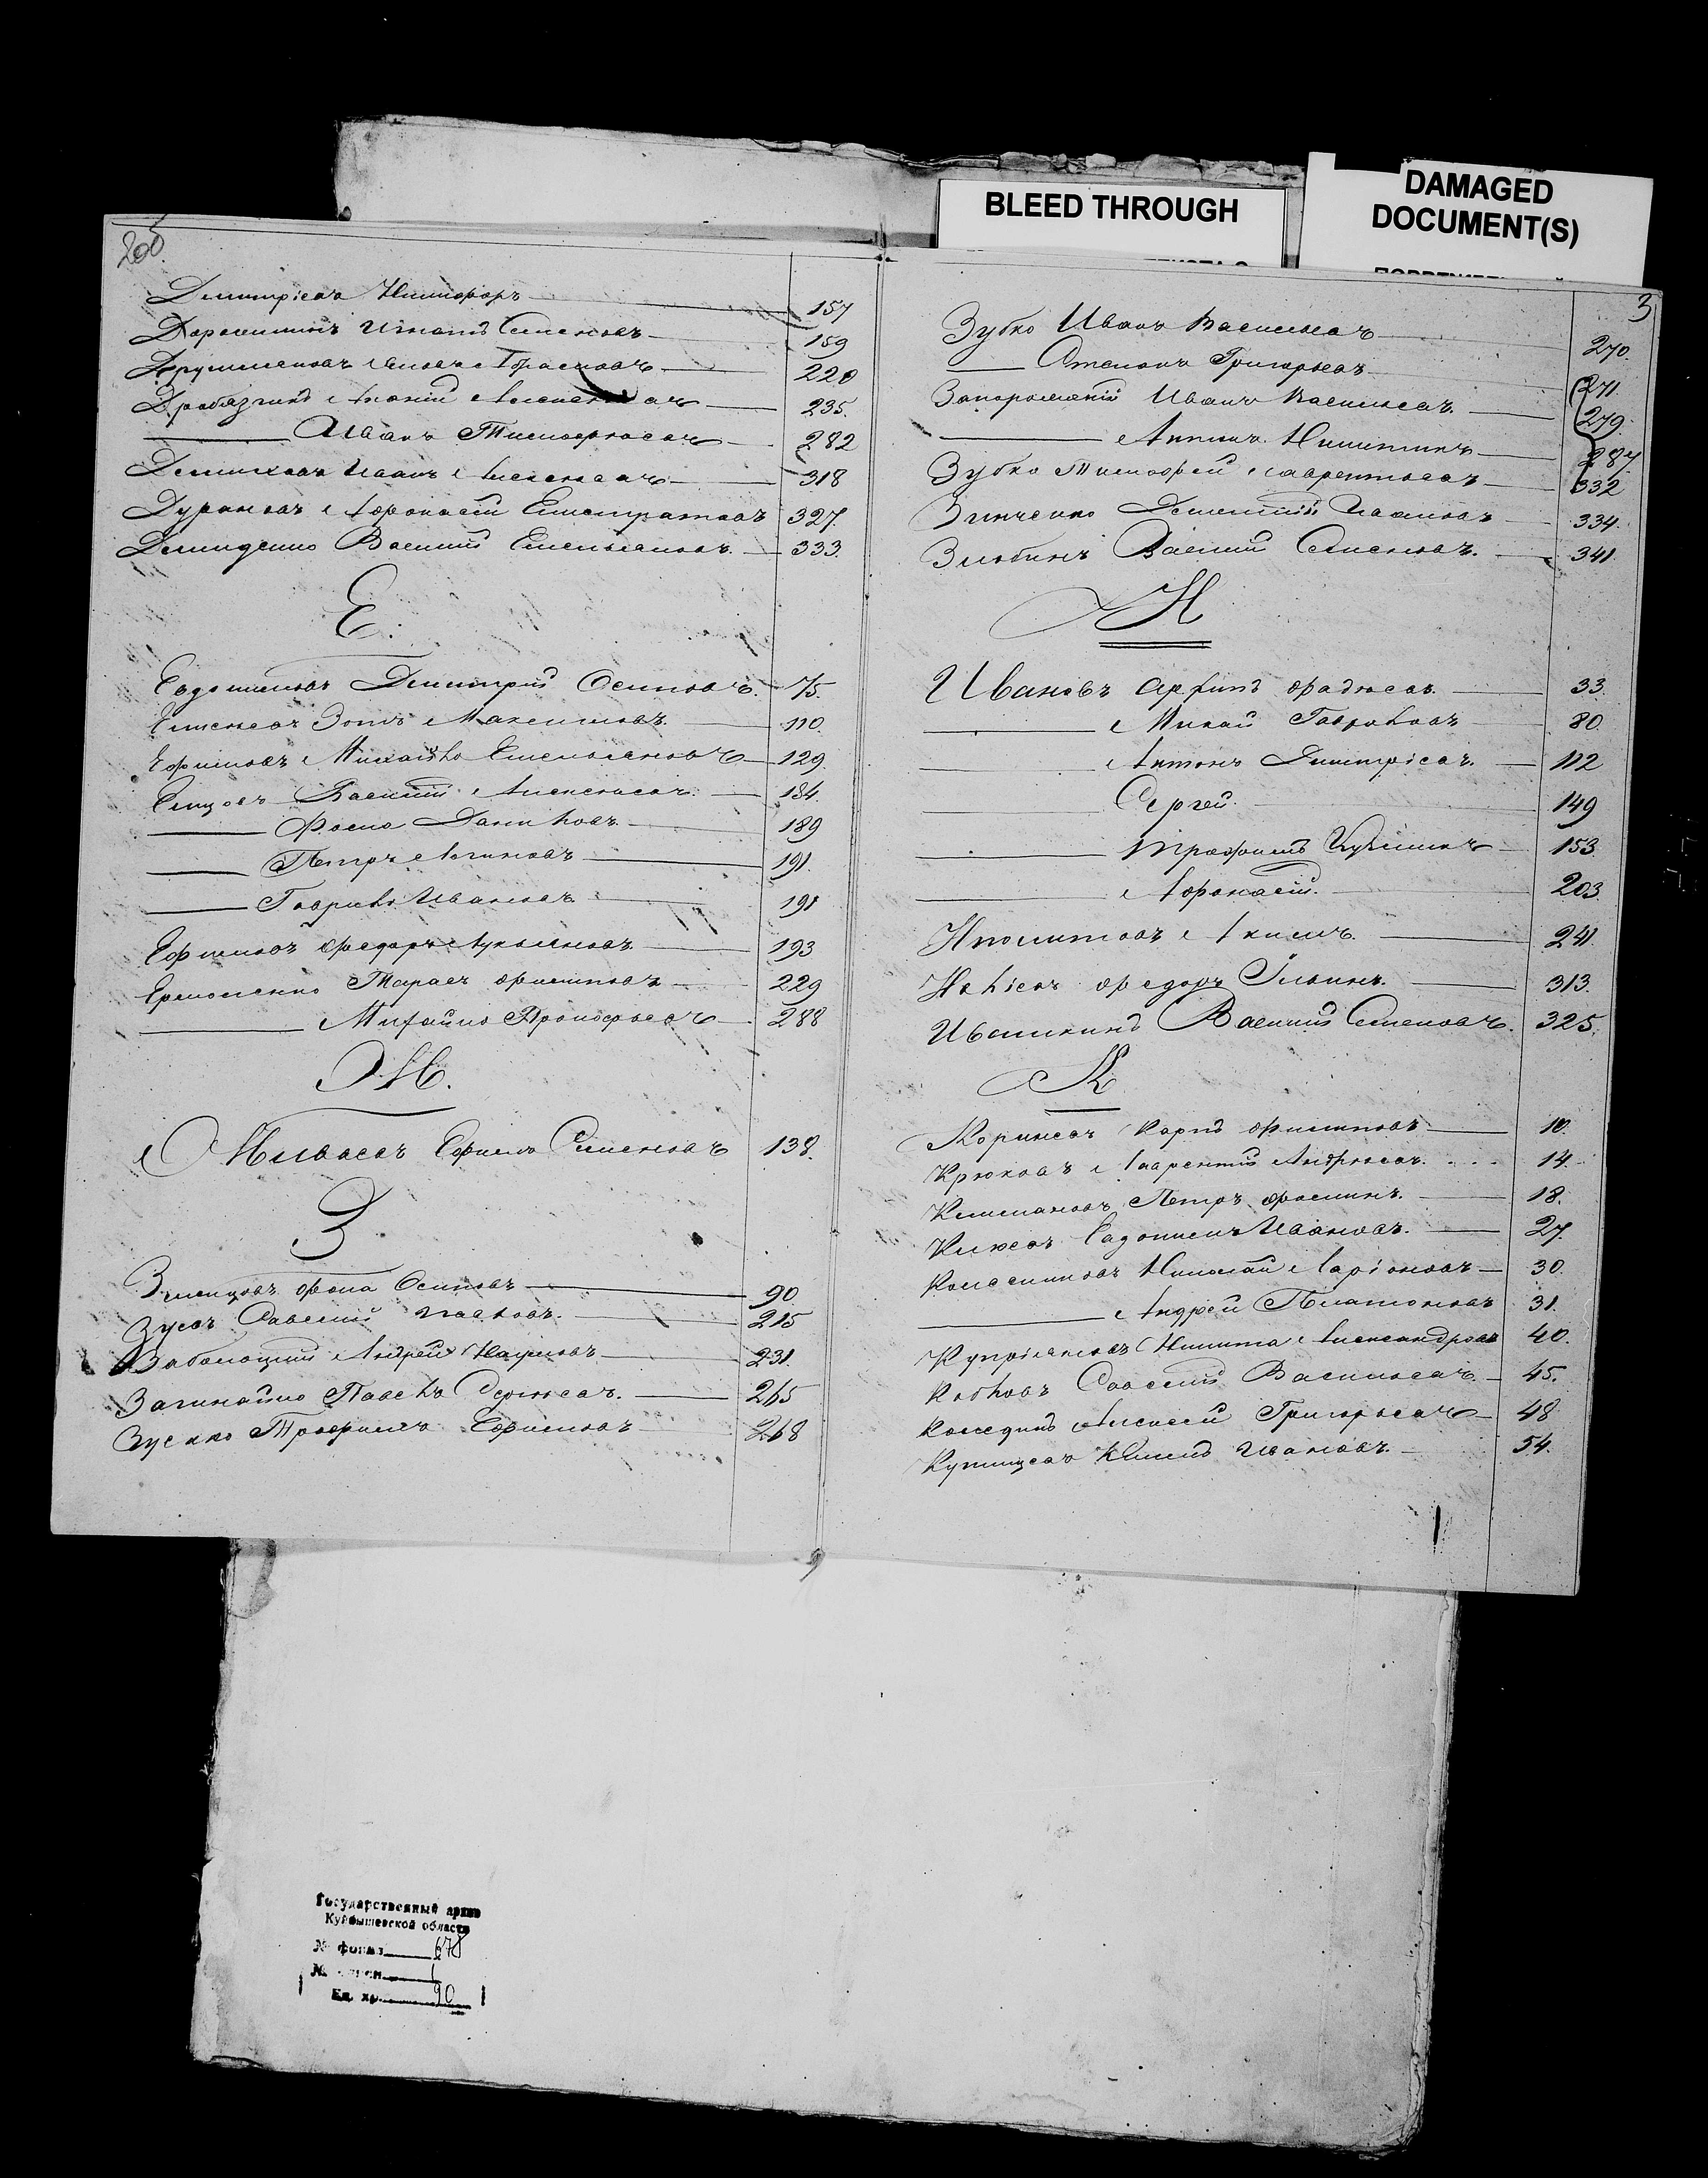 BLEED THROUGH
DAMAGED
DOCUMENT(S)
200
Димитріевъ Никифоръ 157
Игнатъ Семеновъ 159
220
235.
Иванъ Тимофѣевъ 282
Иванъ Алексѣевъ 318
Дурановъ Афонасій Елистратовъ 327.
Демиденко Василий Емельяновъ. 333.
Е.
Евдокимовъ Димитрий Осиповъ. 75.
Елисеевъ Зотъ Максимовъ. 110.
Ефимовъ Михайло Емельяновъ 129.
Елцовъ Василий Алексѣевъ. 184.
Фома Даниловъ. 189
Петръ Логиновъ 191.
Гаврило Ивановъ 191
Ефимовъ Федоръ Лукьяновъ 193
Ермоленко Тарасъ Филиповъ 229
Михайло Прокофьевъ 288
Ж.
Ефимъ Семеновъ 138.
З
Зимцовъ Фома Осиповъ 90.
Зуевъ Савелий Павловъ. 215
Заболоцкий Андрей Наумовъ 231.
Загинайло Павелъ Сергѣевъ. 265
Зуенко Трофимъ Ефимовъ 268
3
Зубко Иванъ Васильевъ 270.
Степанъ Григорьевъ 271.
Запорожскій Иванъ Васильевъ. 279.
Антипъ Никитинъ 287.
Зубко Тимофей Лаврентьевъ 332
Зинченко Дементий Павловъ 334.
Злобинъ Василий Семеновъ. 341.
И
Ивановъ Архипъ Фадѣевъ. 33.
Михай Гавриловъ 80.
Антонъ Димитріевъ. 112
Сергей. 149
Трофимъ Кузминъ 153.
Афонасій. 203
Иполитовъ Акимъ. 241.
Федоръ Ильинъ. 313.
Ивашкинъ Василий Семеновъ. 325.
К
Корнѣевъ Карпъ Филиповъ 10.
Крюковъ Лаврентий Андрѣевъ. 14.
Климановъ Петръ Фоминъ. 18.
Евдокимъ Ивановъ. 27.
Колесниковъ Николай Ларіоновъ 30.
Андрей Платоновъ 31.
Купріяновъ Никита Александровъ 40.
Савелий Васильевъ. 45.
Алексей Григорьевъ 48
Климъ Ивановъ. 54.
Государственный архив
Куйбышевской области
№ фонда 678
1
Ед. хр. 90